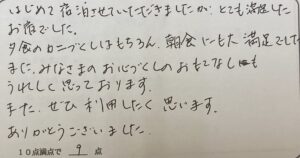 はじめて宿泊させていただきましたが、とても満足した
お宿でした。
夕食のカニづくしはもちろん、朝食にも大満足でした
また、みなさまのお心づくしのおもてなしにも
うれしく思っております。
また、ぜひ利用したく思います。
ありがとうございました。
10点満点で 9 点